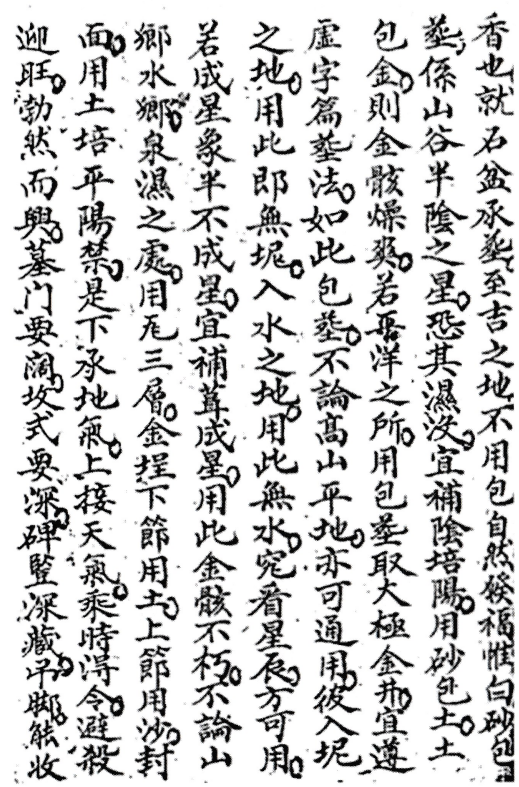 香也就石盆承塟至吉之地不用包自然發福惟白砂包
塟係山谷半陰之星恐其濕没宜補陰培陽用砂包土土
包金則金骸燥爽若平洋之所用包塟取大極金井宜遵
虛字篇塟法如此包塟不論髙山平地亦可通用彼入坭
之地用此即無坭入水之地用此無水宛看星辰方可用
若成星象半不成星宜補葺成星用此金骸不朽不論山
鄉水鄉泉濕之處用瓦三層金埕下節用土上節用沙封
面用土培平陽禁是下承地氣上接天氣乘時淂令避殺
迎旺勃然而興墓门要阔坟式要深碑竪深藏吊脚能收